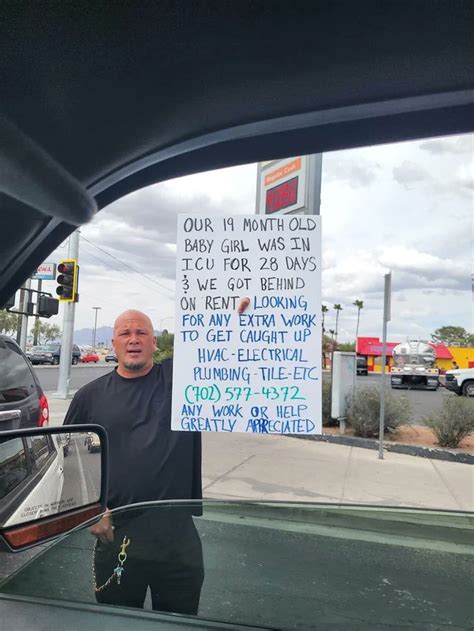 Regular Cash
OUR 19 MONTH OLD
BABY GIRL WAS IN
ICU FOR 28 DAYS
& WE GOT BEHIND
ON RENT LOOKING
FOR ANY EXTRA WORK
TO GET CAUGHT UP
HVAC-ELECTRICAL
PLUMBING-TILE-ETC
(702) 577-4372
ANY WORK OR HELP
GREATLY APPRECIATED
OBJECTS IN MIRROR ARE